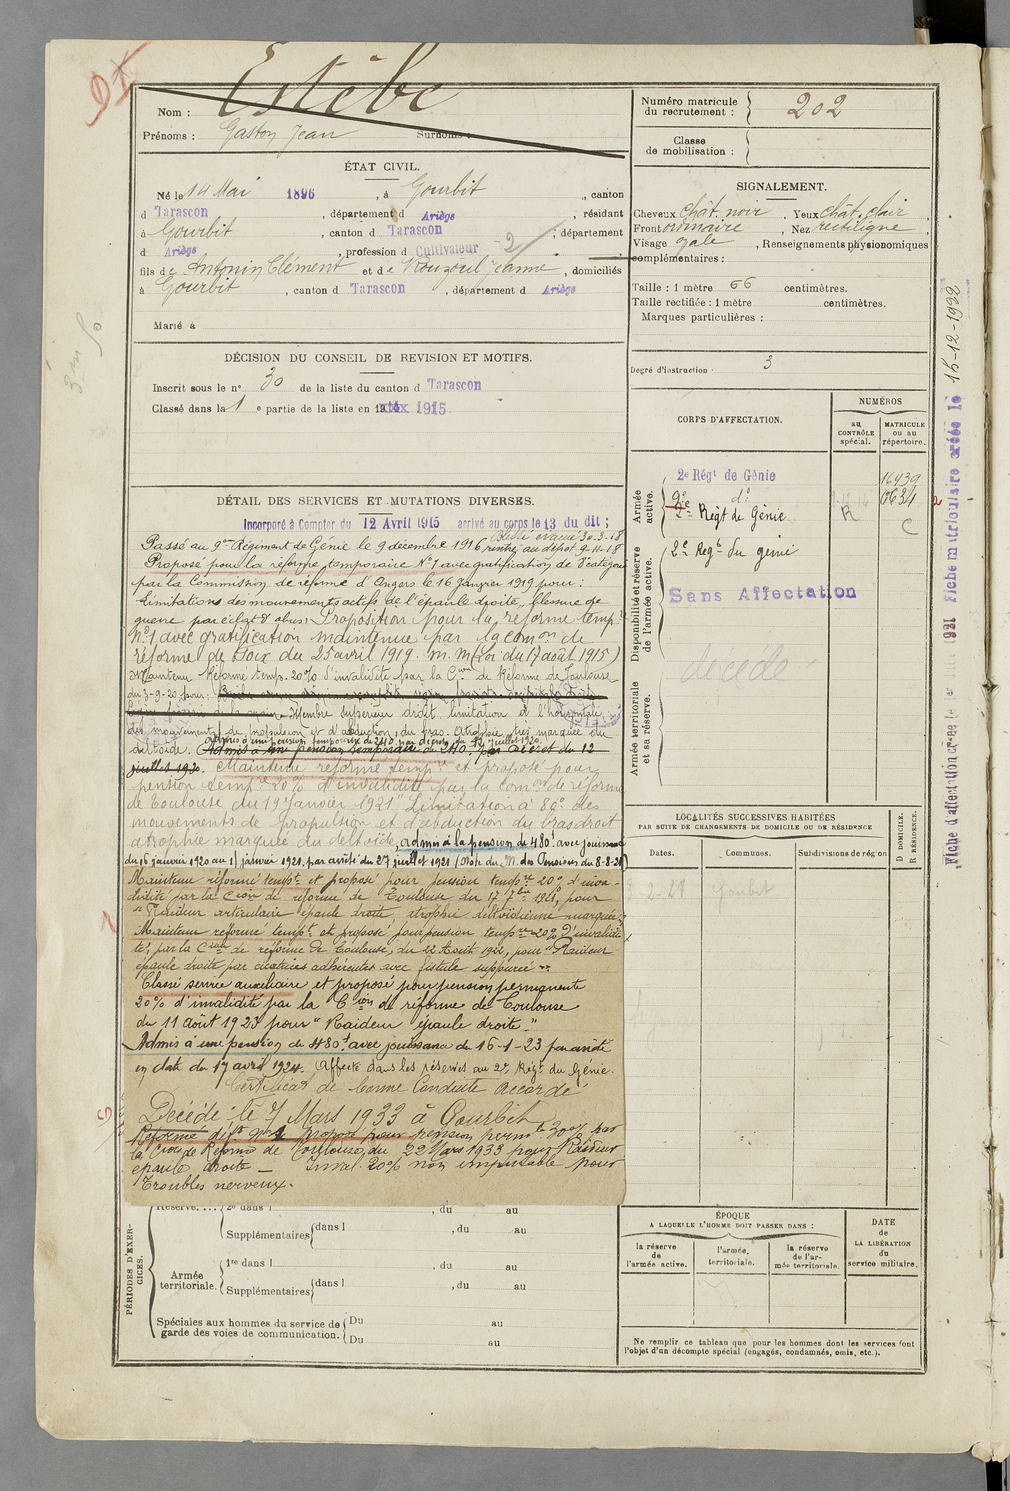 Nom : Estèbe
Prénoms : Gaston Jean Surnoms :
ÉTAT CIVIL.
Né le 14 Mai 1896, à Gourbit, canton
d Tarascon, département d Ariège, résidant
à Gourbit, canton d Tarascon, département
d Ariège, profession d Cultivateur -2
fils de Antonin Clément et de Rouzoul Jeanne, domiciliés
à Gourbit, canton d Tarascon, département d Ariège
Marié à
DÉCISION DU CONSEIL DE REVISION ET MOTIFS.
Inscrit sous le n° 30 de la liste du canton d Tarascon
Classé dans la 1e partie de la liste en 1915
DÉTAIL DES SERVICES ET MUTATIONS DIVERSES.
Incorporé à Compter du 12 Avril 1915 arrivé au corps le 13 du dit ;
évacué 30.3.18
Passé au 9me Régiment de Génie le 9 décembre 1916 rentré au dépôt 9-11-18
Proposé pour la réforme temporaire N°1 avec gratification de 8e catégorie
par la Commission de réforme d'Angers le 16 Janvier 1919 pour :
Limitations des mouvements actifs de l'épaule droite, blessure de
guerre par éclat d'obus. Proposition pour la réforme tempre
N°1 avec gratification maintenue par la Comon de
réforme de Foix du 25 avril 1919. m.m (Loi du 17 août 1915)
Maintenu Réformé temp. 20% d'invalidité par la Con de Réforme de Toulouse
du 3-9-20 pour :
Membre supérieur droit limitation à l'horizontale
des mouvements de propulsion et d'abduction du bras. Atrophie très marquée du
Admis à une pension temporaire de 240 par décret du 12 Juillet 1920.
deltoïde. Admis à une pension temporaire de 240 par décret du 12
juillet 1920. Maintenu réformé tempre et proposé pour
pension tempre 20% d'invalidité par la Comon de réforme
de Toulouse du 19 Janvier 1921 "Limitation à 80° des
mouvements de propulsion et d'abduction du bras droit
atrophie marquée du deltoïde, admis à la pension de 480f avec jouissance
du 16 janvier 1920 au 1 janvier 1921, par arrêté du 27 juillet 1921 (Not. du M. des Pensions du 8-8-21)
Maintenu réformé tempt et proposé pour pension tempre 20% d'inva-
lidité par la Cion de réforme de Toulouse du 17 7bre 1921, pour
"Raideur articulaire épaule droite, atrophie deltoïdienne marquée"
Maintenu réformé tempt et proposé pour pension tempre 20% d'invalidi-
té, par la Cion de réforme de Toulouse, du 22 Août 1922, pour "Raideur
épaule droite par cicatrices adhérentes avec fistule suppurée"
Classé service auxiliaire et proposé pour pension permanente
20% d'invalidité par la Cion de réforme de Toulouse
du 11 Août 1923 pour "Raideur épaule droite."
Admis à une pension de 480f avec jouissance du 16-1-23 par arrêté
en date du 17 avril 1924. Affecté dans les réserves au 2e Régt du Génie.
Certificat de bonne Conduite accordé
Décédé : le 7 Mars 1933 à Gourbit
Réformé déft n°1 proposé pour pension permte 30% par
la Cion de Réforme de Toulouse du 22 Mars 1933 pour Raideur
épaule droite — Inval. 20% non imputable pour
Troubles nerveux.
PÉRIODES D'EXERCICES.
Réserve. 2e dans l , du au
Supplémentaires dans l , du au
Armée territoriale. 1re dans l , du au
Supplémentaires dans l , du au
Spéciales aux hommes du service de garde des voies de communication. Du au
Du au
Numéro matricule du recrutement : 202
Classe de mobilisation :
SIGNALEMENT.
Cheveux chât. noir, Yeux chât. clair,
Front ordinaire, Nez rectiligne,
Visage ovale, Renseignements physionomiques
complémentaires :
Taille : 1 mètre 66 centimètres.
Taille rectifiée : 1 mètre centimètres.
Marques particulières :
Degré d'instruction : 3
CORPS D'AFFECTATION.
NUMÉROS
au CONTRÔLE spécial.
MATRICULE ou au répertoire.
Armée active.
2e Régt de Génie 16439
9e do
2e Régt du Génie R C
Disponibilité et réserve de l'armée active.
2e Regt du génie
Sans Affectation
décédé
Armée territoriale et sa réserve.
LOCALITÉS SUCCESSIVES HABITÉES
PAR SUITE DE CHANGEMENTS DE DOMICILE OU DE RÉSIDENCE
Dates.
Communes.
Subdivisions de région
D DOMICILE.
R RÉSIDENCE.
2-21 Gourbit
ÉPOQUE
A LAQUELLE L'HOMME DOIT PASSER DANS :
la réserve de l'armée active.
l'armée territoriale.
la réserve de l'armée territoriale.
DATE de LA LIBÉRATION du service militaire.
Ne remplir ce tableau que pour les hommes dont les services font
l'objet d'un décompte spécial (engagés, condamnés, omis, etc.).
Fiche matriculaire créée le 15-12-1922
Fiche d'affectation créée le 1er 1921